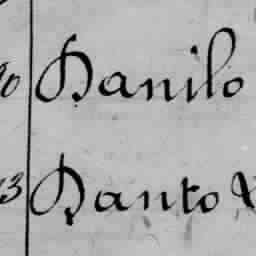 Danilo
Danto